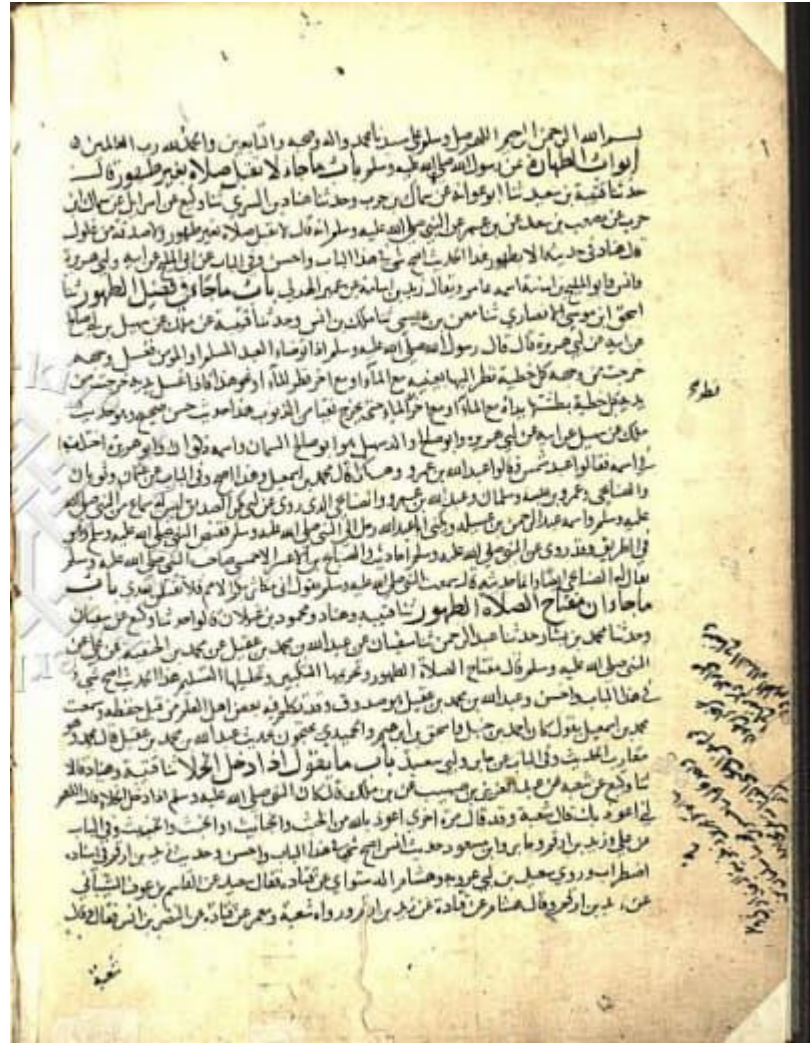 بسم الله الرحمن الرحيم اللهم صل وسلم على سيدنا محمد واله وصحبه والتابعين والحمد لله رب العالمين
ابواب الطهارة عن رسول الله صلى الله عليه وسلم باب ما جاء لا تقبل صلاة بغير طهور قال
حدثنا قتيبة بن سعيد ثنا ابو عوانة عن سماك بن حرب وحدثنا هناد بن السري ثنا وكيع عن اسرايل عن سماك بن
حرب عن مصعب بن سعد عن بن عمر عن النبي صلى الله عليه وسلم انه قال لا تقبل صلاة بغير طهور ولا صدقة من غلول
قال هناد في حديثه الا بطهور هذا الحديث اصح شيء في هذا الباب واحسن وفي الباب عن ابي المليح عن ابيه وابي هريرة
وانس وابو المليح بن اسامة اسمه عامر ويقال زيد بن اسامة بن عمير الهذلي باب ما جاء في فضل الطهور ثنا
اسحق ابن موسى الانصاري ثنا معن بن عيسى ثنا ملك بن انس وحدثنا قتيبة عن ملك عن سهيل بن ابي صالح
عن ابيه عن ابي هريرة قال قال رسول الله صلى الله عليه وسلم اذا توضاء العبد المسلم او المومن فغسل وجهه
خرجت من وجهه كل خطية نظر اليها بعينيه مع الماء او مع اخر قطر الماء او نحو هذا فاذا غسل يديه خرجت من
يديه كل خطية بطشتها يداه مع الماء او مع اخر الماء حتى يخرج نقيا من الذنوب هذا حديث حسن صحيح وهو حديث
ملك عن سهيل عن ابيه عن ابي هريرة وابو صالح والد سهيل هو ابو صالح السمان واسمه ذكوان وابو هريرة اختلف
في اسمه فقالوا عبد شمس وقالوا عبد الله بن عمرو وهكذا قال محمد بن اسمعيل وهذا اصح وفي الباب عن عثمان وثوبان
والصنابحي وعمرو بن عبسة وسلمان وعبد الله بن عمرو والصنابحي الذي روى عن ابي بكر الصديق ليس له سماع من النبي صلى الله
عليه وسلم واسمه عبد الرحمن بن عسيلة ويكنى ابا عبد الله رحل الى النبي صلى الله عليه وسلم فقبض النبي صلى الله عليه وسلم وهو
في الطريق وقد روى عن النبي صلى الله عليه وسلم احاديث والصنابح بن الاعسر الاحمسي صاحب النبي صلى الله عليه وسلم
يقال له الصنابحي ايضا وانما حديثه قال سمعت النبي صلى الله عليه وسلم يقول اني مكاثر بكم الامم فلا تقتتلن بعدي باب
ما جاء ان مفتاح الصلاة الطهور ثنا قتيبة وهناد ومحمود بن غيلان قالوا حدثنا وكيع عن سفيان
وحدثنا محمد بن بشار حدثنا عبد الرحمن ثنا سفيان عن عبد الله بن محمد بن عقيل عن محمد بن الحنفية عن علي عن
النبي صلى الله عليه وسلم قال مفتاح الصلاة الطهور وتحريمها التكبير وتحليلها التسليم هذا الحديث اصح شيء
في هذا الباب واحسن وعبد الله بن محمد بن عقيل هو صدوق وقد تكلم فيه بعض اهل العلم من قبل حفظه وسمعت
محمد بن اسمعيل يقول كان احمد بن حنبل واسحق بن ابرهيم والحميدي يحتجون بحديث عبد الله بن محمد بن عقيل قال محمد وهو
مقارب الحديث وفي الباب عن جابر وابي سعيد باب ما يقول اذا دخل الخلا ثنا قتيبة وهناد قالا
ثنا وكيع عن شعبة عن عبد العزيز بن صهيب عن بن ملك قال كان النبي صلى الله عليه وسلم اذا دخل الخلا قال اللهم
اني اعوذ بك قال شعبة وقد قال مرة اخرى اعوذ بالله من الخبث والخبائث او الخبث والخبيث وفي الباب
عن علي وزيد بن ارقم وجابر وابن مسعود حديث انس اصح شيء في هذا الباب واحسن وحديث زيد بن ارقم في اسناده
اضطراب وروى سعيد بن ابي عروبة وهشام الدستواي عن قتادة فقال سعيد عن القاسم بن عوف الشيباني
عن زيد بن ارقم وقال هشام عن قتادة عن زيد بن ارقم ورواه شعبة ومعمر عن قتادة عن النضر بن انس فقال
شعبة